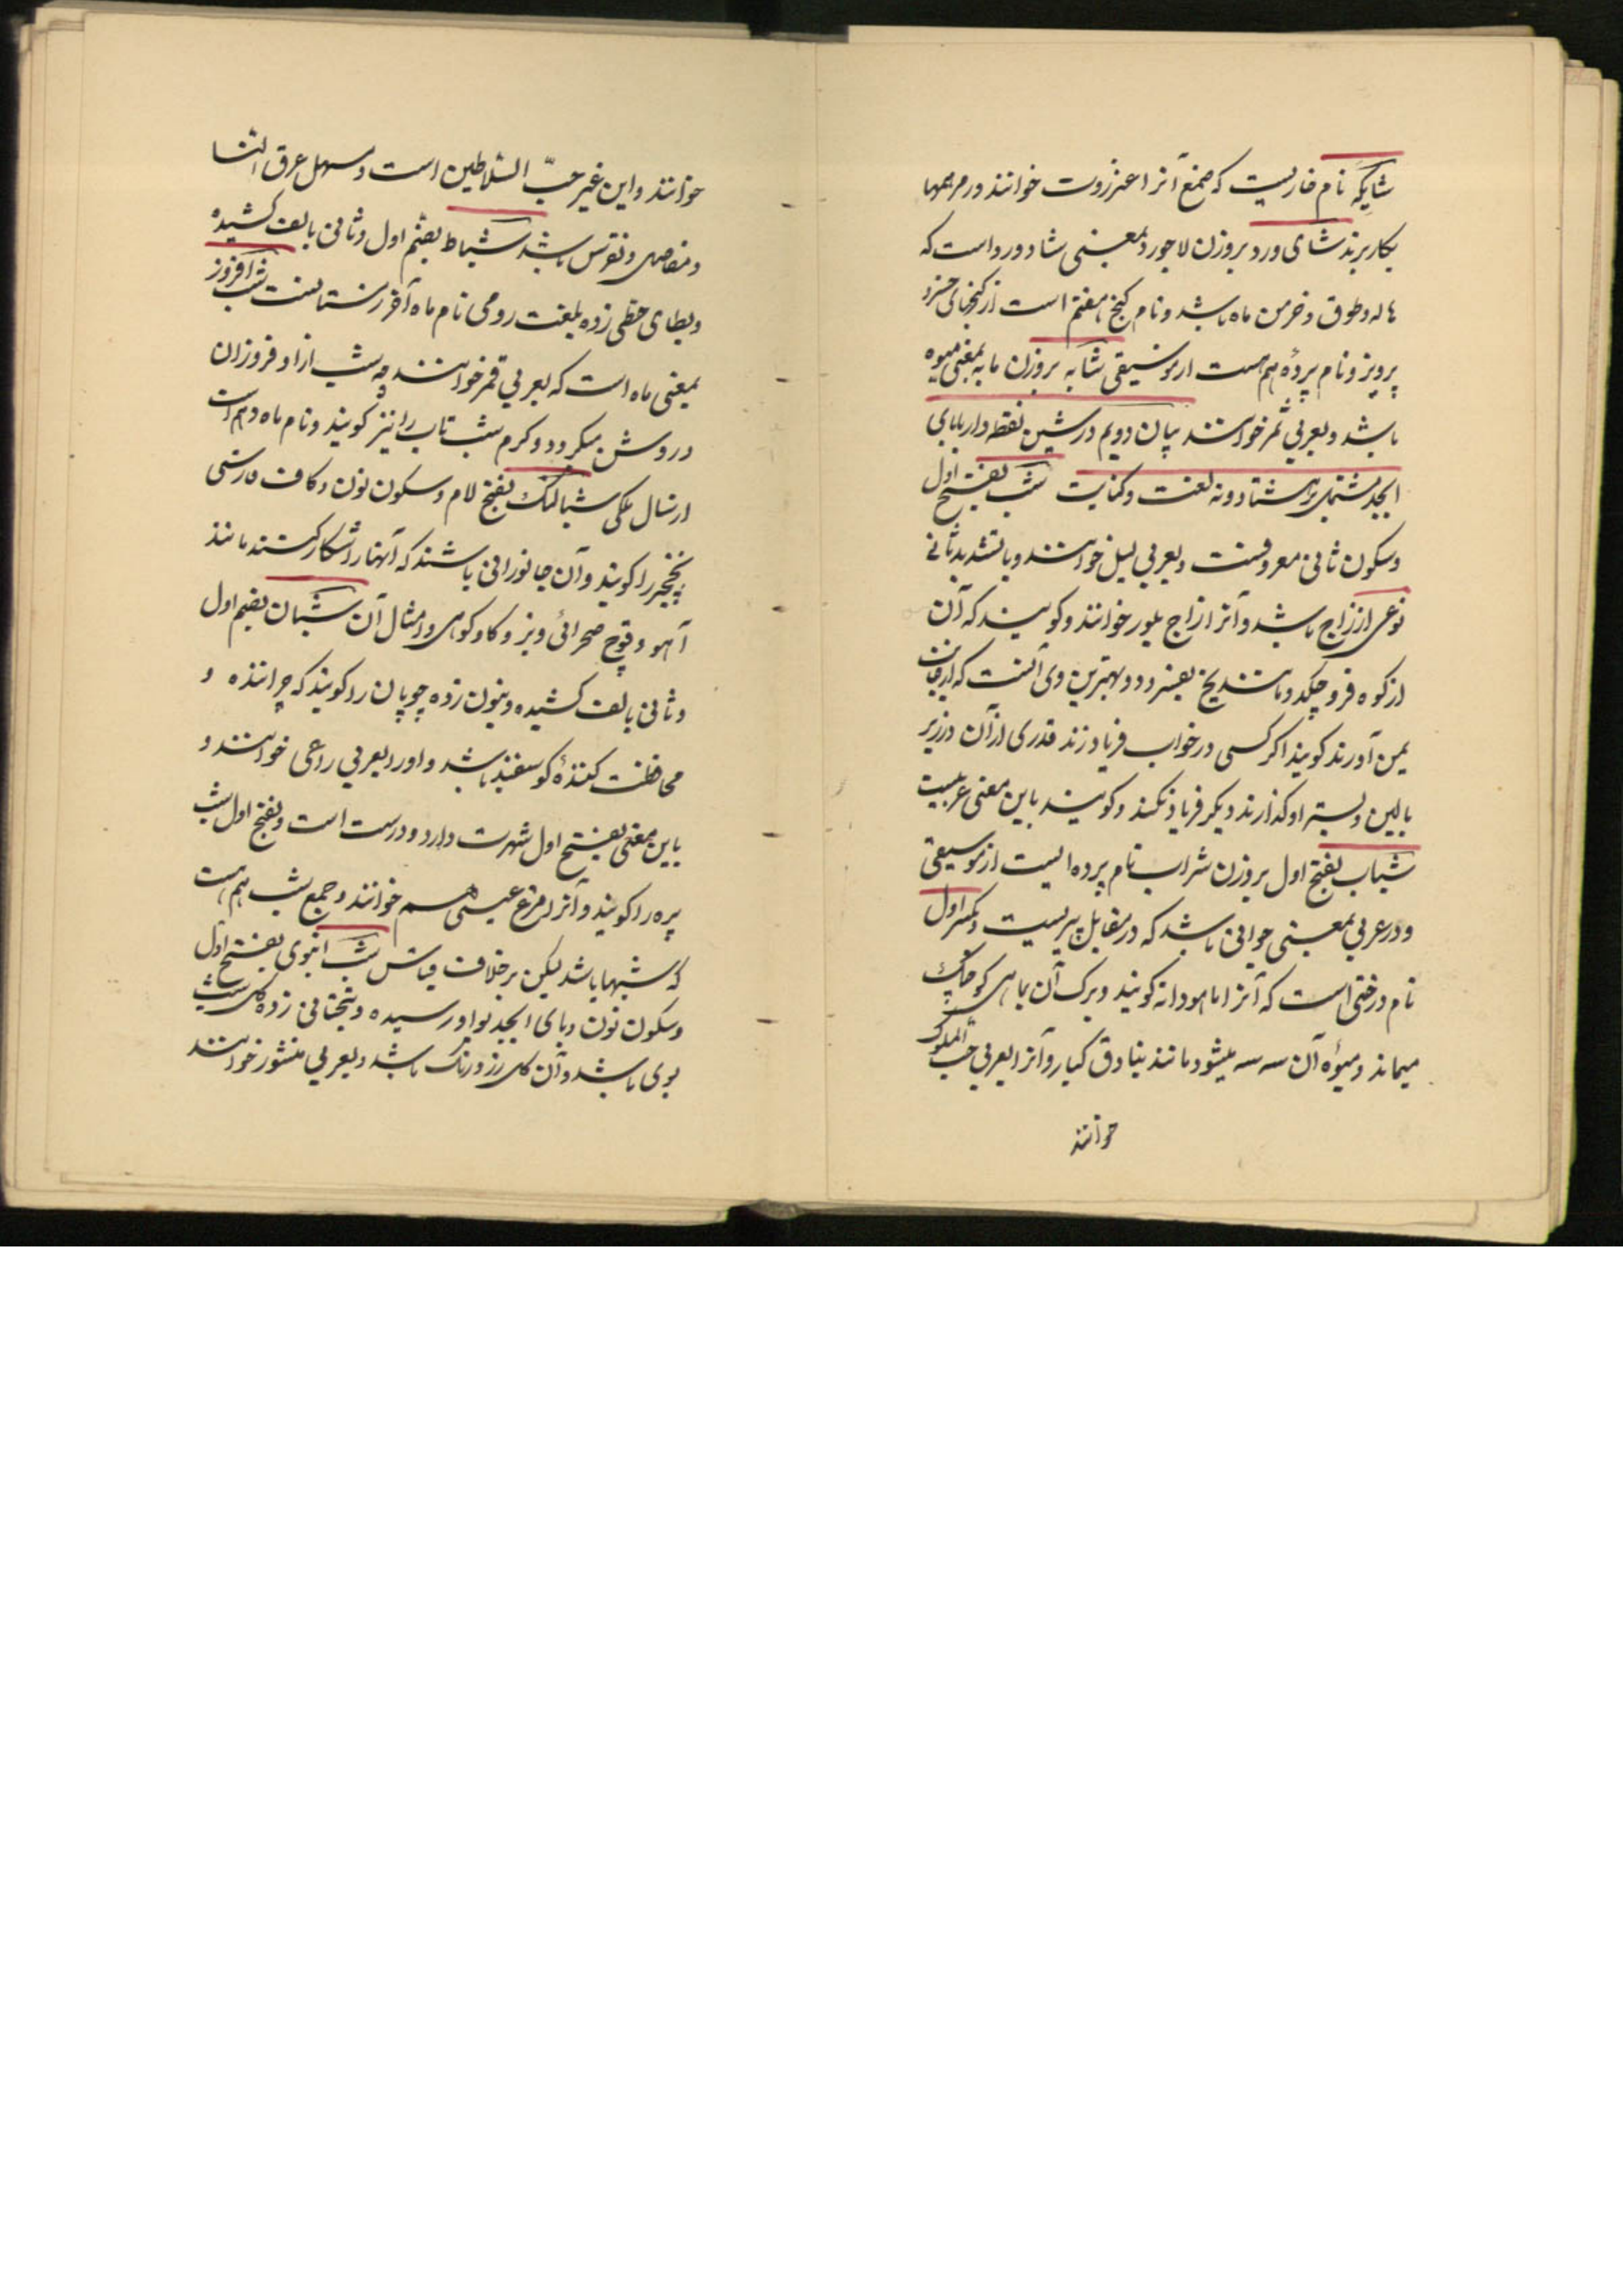 شایکه نام خاریست که صمغ آنرا عنزروت خوانند و در مرهمها
بکار برند شای ورد بروزن لاجورد بمعنی شادورد است که
هاله و طوق و خرمن ماه باشد و نام گنج هفتم است از گنجهای خسرو
پرویز و نام پردهٔ هم هست از موسیقی شایه بروزن مایه بمعنی میوه
باشد و بعربی ثمر خوانند بیان دویم در شین نقطه دار با بای
ابجد مشتمل بر هشتاد و نه لغت و کنایت شب بفتح اول
و سکون ثانی معروفست و بعربی لیل خوانند و با تشدید ثانی
نوعی از زاج باشد و آنرا زاج بلور خوانند و گویند که آن
از کوه فرو چکد و مانند یخ بفسرد و بهترین وی آنست که از جانب
یمن آورند گویند اگر کسی در خواب فریاد زند قدری از آن در زیر
بالین و بستر او گذارند دیگر فریاد نکند و گویند باین معنی عربیست
شباب بفتح اول بروزن شراب نام پرده ایست از موسیقی
و در عربی بمعنی جوانی باشد که در مقابل پیریست و بکسر اول
نام درختی است که آنرا ماهودانه گویند و برک آن بماهی کوچک
میماند و میوهٔ آن سه سه میشود مانند بنادق کبار و آنرا بعربی حب الملوک
خوانند
خوانند و این غیر حبّ السلاطین است و مسهل عرق النسا
و مفاصل و نقرس باشد شباط بضم اول و ثانی بالف کشیده
و بطای حطی زده بلغت رومی نام ماه آخر زمستانست شب افروز
بمعنی ماه است که بعربی قمر خوانند چه شب از او فروزان
و روشن میگردد و کرم شب تاب را نیز گویند و نام ماه دهم است
از سال ملکی شبالنک بفتح لام و سکون نون و کاف فارسی
نخچیر را گویند و آن جانورانی باشند که آنها را شکار کنند مانند
آهو و قوچ صحرائی و بز و کاو کوهی و امثال آن شبان بضم اول
و ثانی بالف کشیده و بنون زده چوپان را گویند که چراننده و
محافظت کنندهٔ کوسفند باشد و او را بعربی راعی خوانند و
باین معنی بفتح اول شهرت دارد و درست است و بفتح اول شب
پره را گویند و آنرا مرغ عیسی هم خوانند و جمع شب هم هست
که شبها باشد لیکن بر خلاف قیاس شب انبوی بفتح اول
و سکون نون و بای ابجد بواو رسیده و بتحتانی زده گل شب
بوی باشد و آن گل زرد رنک باشد و بعربی منثور خوانند